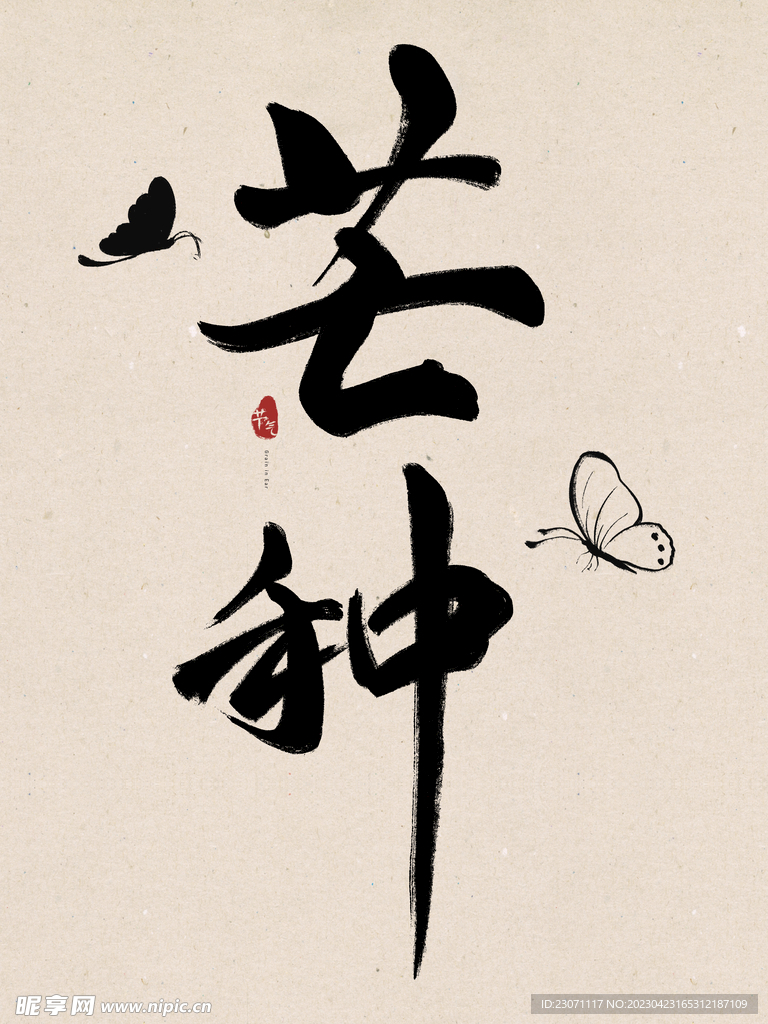 芒种
节气
Grain in Ear
昵享网 www.nipic.cn
ID:23071117 NO:20230423165312187109